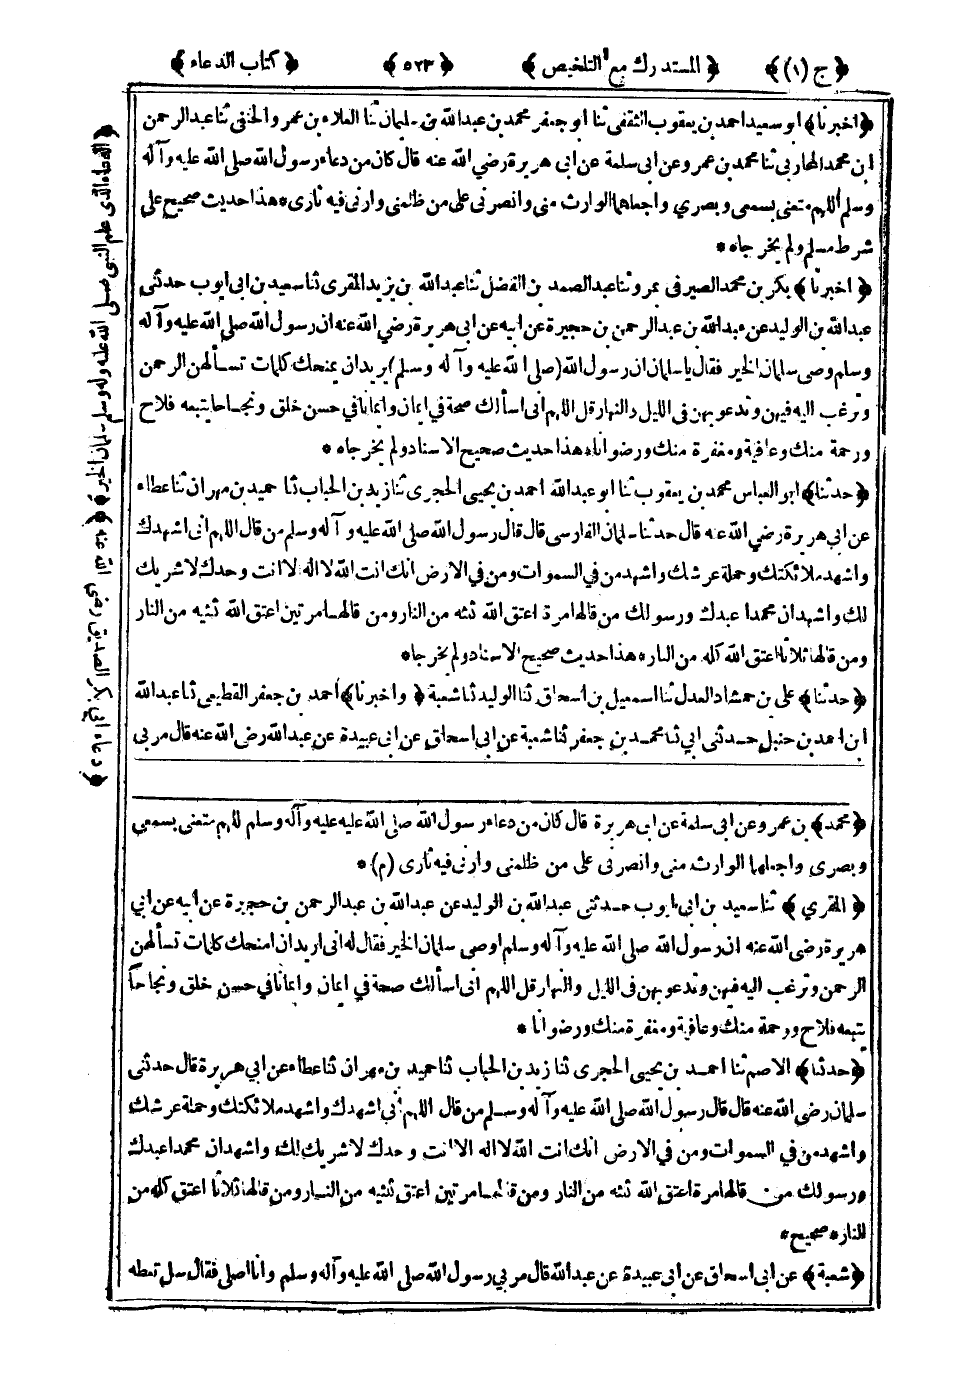 ﴿ج (١)﴾ ﴿المستدرك مع التلخيص﴾ ﴿٥٢٣﴾ ﴿كتاب الدعاء﴾
﴿اخبرنا﴾ ابو سعيد احمد بن يعقوب الثقفى ثنا ابو جعفر محمد بن عبدالله بن سليمان ثنا العلاء بن عمرو الحنفى ثنا عبد الرحمن
ابن محمد المحاربى ثنا محمد بن عمرو عن ابى سلمة عن ابى هريرة رضي الله عنه قال كان من دعاء رسول الله صلى الله عليه وآله
وسلم أللهم متعنى بسمعى وبصري واجعلهما الوارث منى وانصرنى على من ظلمنى وارنى فيه ثارى * هذا حديث صحيح على
شرط مسلم ولم يخرجاه *
﴿اخبرنا﴾ بكر بن محمد الصيرفى بمرو ثنا عبد الصمد بن الفضل ثنا عبدالله بن يزيد المقرى ثنا سعيد بن ابى ايوب حدثنى
عبدالله بن الوليد عن عبدالله بن عبد الرحمن بن حجيرة عن ابيه عن ابى هريرة رضي الله عنه ان رسول الله صلى الله عليه وآله
وسلم وصى سلمان الخير فقال يا سلمان ان رسول الله (صلى الله عليه وآله وسلم) يريد ان يمنحك كلمات تسألهن الرحمن
وترغب اليه فيهن وتدعو بهن فى الليل والنهار قل اللهم انى اسألك صحة فى ايمان وايمانا في حسن خلق ونجاحا يتبعه فلاح
ورحمة منك وعافية ومغفرة منك ورضوانا * هذا حديث صحيح الاسناد ولم يخرجاه *
﴿حدثنا﴾ ابو العباس محمد بن يعقوب ثنا ابو عبدالله احمد بن يحيى الحجرى ثنا زيد بن الحباب ثنا حميد بن مهران ثنا عطاء
عن ابى هريرة رضي الله عنه قال حدثنا سلمان الفارسى قال قال رسول الله صلى الله عليه وآله وسلم من قال اللهم انى اشهدك
واشهد ملائكتك وحملة عرشك واشهد من في السموات ومن في الارض انك انت الله لا اله الا انت وحدك لا شريك
لك واشهد ان محمدا عبدك ورسولك من قالها مرة اعتق الله ثلثه من النار ومن قالها مرتين اعتق الله ثلثيه من النار
ومن قالها ثلاثا اعتق الله كله من النار * هذا حديث صحيح الاسناد ولم يخرجاه *
﴿حدثنا﴾ على بن حمشاذ العدل ثنا اسمعيل بن اسحاق ثنا الوليد ثنا شعبة ﴿واخبرنا﴾ أحمد بن جعفر القطيعى ثنا عبدالله
ابن احمد بن حنبل حدثنى ابي ثنا محمد بن جعفر ثنا شعبة عن ابى اسحاق عن ابى عبيدة عن عبدالله رضى الله عنه قال مر بى
﴿محمد﴾ بن عمرو عن ابى سلمة عن ابى هريرة قال كان من دعاء رسول الله صلى الله عليه عليه وآله وسلم أللهم متعنى بسمعي
وبصرى واجعلهما الوارث منى وانصرنى على من ظلمنى وارنى فيه ثارى (م) *
﴿المقري﴾ ثنا سعيد بن ابى ايوب حدثنى عبدالله بن الوليد عن عبدالله بن عبد الرحمن بن حجيرة عن ابيه عن ابي
هريرة رضى الله عنه ان رسول الله صلى الله عليه وآله وسلم اوصى سلمان الخير فقال له انى اريد ان امنحك كلمات تسألهن
الرحمن وترغب اليه فيهن وتدعو بهن فى الليل والنهار قل اللهم انى اسألك صحة في ايمان وايمانا في حسن خلق ونجاحاً
يتبعه فلاح ورحمة منك وعافية ومغفرة منك ورضوانا *
﴿حدثنا﴾ الاصم ثنا احمد بن يحيى الحجرى ثنا زيد بن الحباب ثنا حميد بن مهران ثنا عطاء عن ابي هريرة قال حدثنى
سلمان رضي الله عنه قال قال رسول الله صلى الله عليه وآله وسلم من قال اللهم أني اشهدك واشهد ملائكتك وحملة عرشك
واشهد من في السموات ومن في الارض انك انت الله لا اله الا انت وحدك لا شريك لك واشهد ان محمدا عبدك
ورسولك من قالها مرة اعتق الله ثلثه من النار ومن قالها مرتين اعتق ثلثيه من النار ومن قالها ثلاثا اعتق كله من
النار * صحيح *
﴿شعبة﴾ عن ابى اسحاق عن ابى عبيدة عن عبدالله قال مر بي رسول الله صلى الله عليه وآله وسلم وانا اصلى فقال سل تعطه
﴿الدعاء الذى علم النبى صلى الله عليه وآله وسلم سلمان الخير﴾ ﴿دعاء ابي بكر الصديق رضي الله عنه﴾